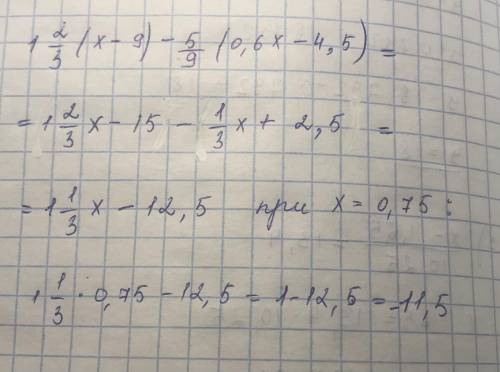 1 2/3 (x - 9) - 5/9 (0,6x - 4,5) =
= 1 2/3 x - 15 - 1/3 x + 2,5 =
= 1 1/3 x - 12,5 при x = 0,75 :
1 1/3 · 0,75 - 12,5 = 1 - 12,5 = -11,5